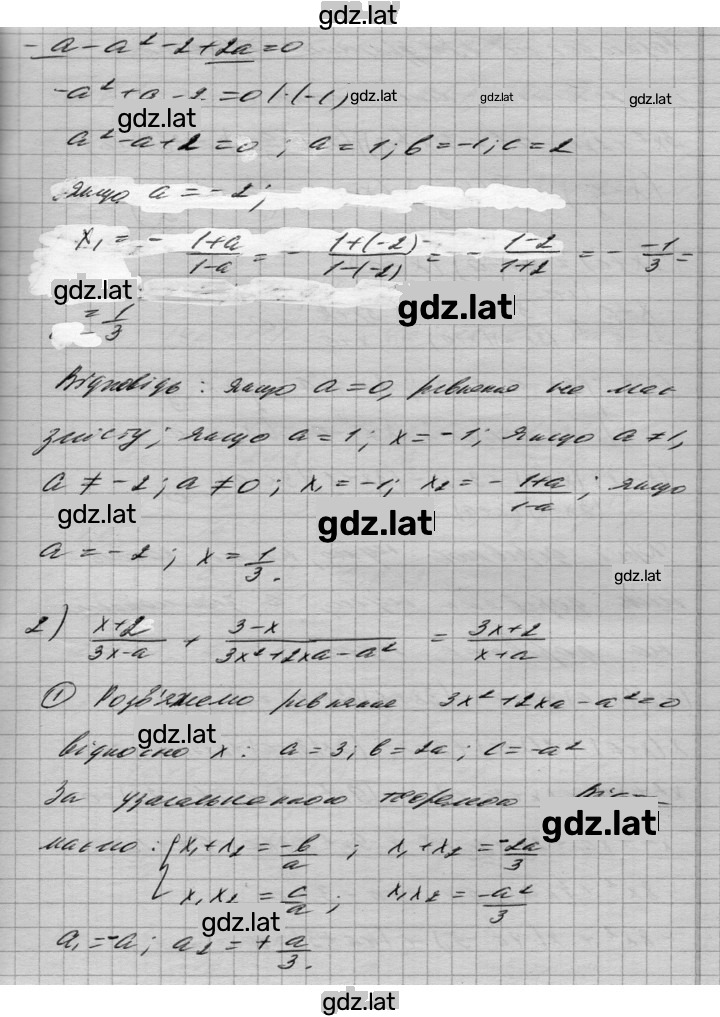 gdz.lat
- a - a² - 2 + 2a = 0
-a² + a - 2 = 0 | · (-1)
gdz.lat gdz.lat gdz.lat
gdz.lat
a² - a + 2 = 0 ; a = 1; в = -1; c = 2
якщо a = -2;
x₁ = - (1+a)/(1-a) = - (1+(-2))/(1-(-2)) = - (1-2)/(1+2) = - (-1)/3 =
gdz.lat gdz.lat
= 1/3
Відповідь: якщо a = 0, рівняння не має
змісту; якщо a = 1; x = -1; якщо a ≠ 1,
a ≠ -2; a ≠ 0; x₁ = -1; x₂ = - (1+a)/(1-a); якщо
gdz.lat gdz.lat
a = -2; x = 1/3.
gdz.lat
2) (x+2)/(3x-a) + (3-x)/(3x²+2xa-a²) = (3x+2)/(x+a)
① Розв'яжемо рівняння 3x²+2xa-a²=0
gdz.lat
відносно x: a = 3; в = 2a; c = -a²
За узагальненною теоремою Вієта
gdz.lat
маємо: { x₁+x₂ = -в/a ; x₁+x₂ = -2a/3
x₁x₂ = c/a ; x₁x₂ = -a²/3
gdz.lat
a₁ = -a; a₂ = + a/3.
gdz.lat